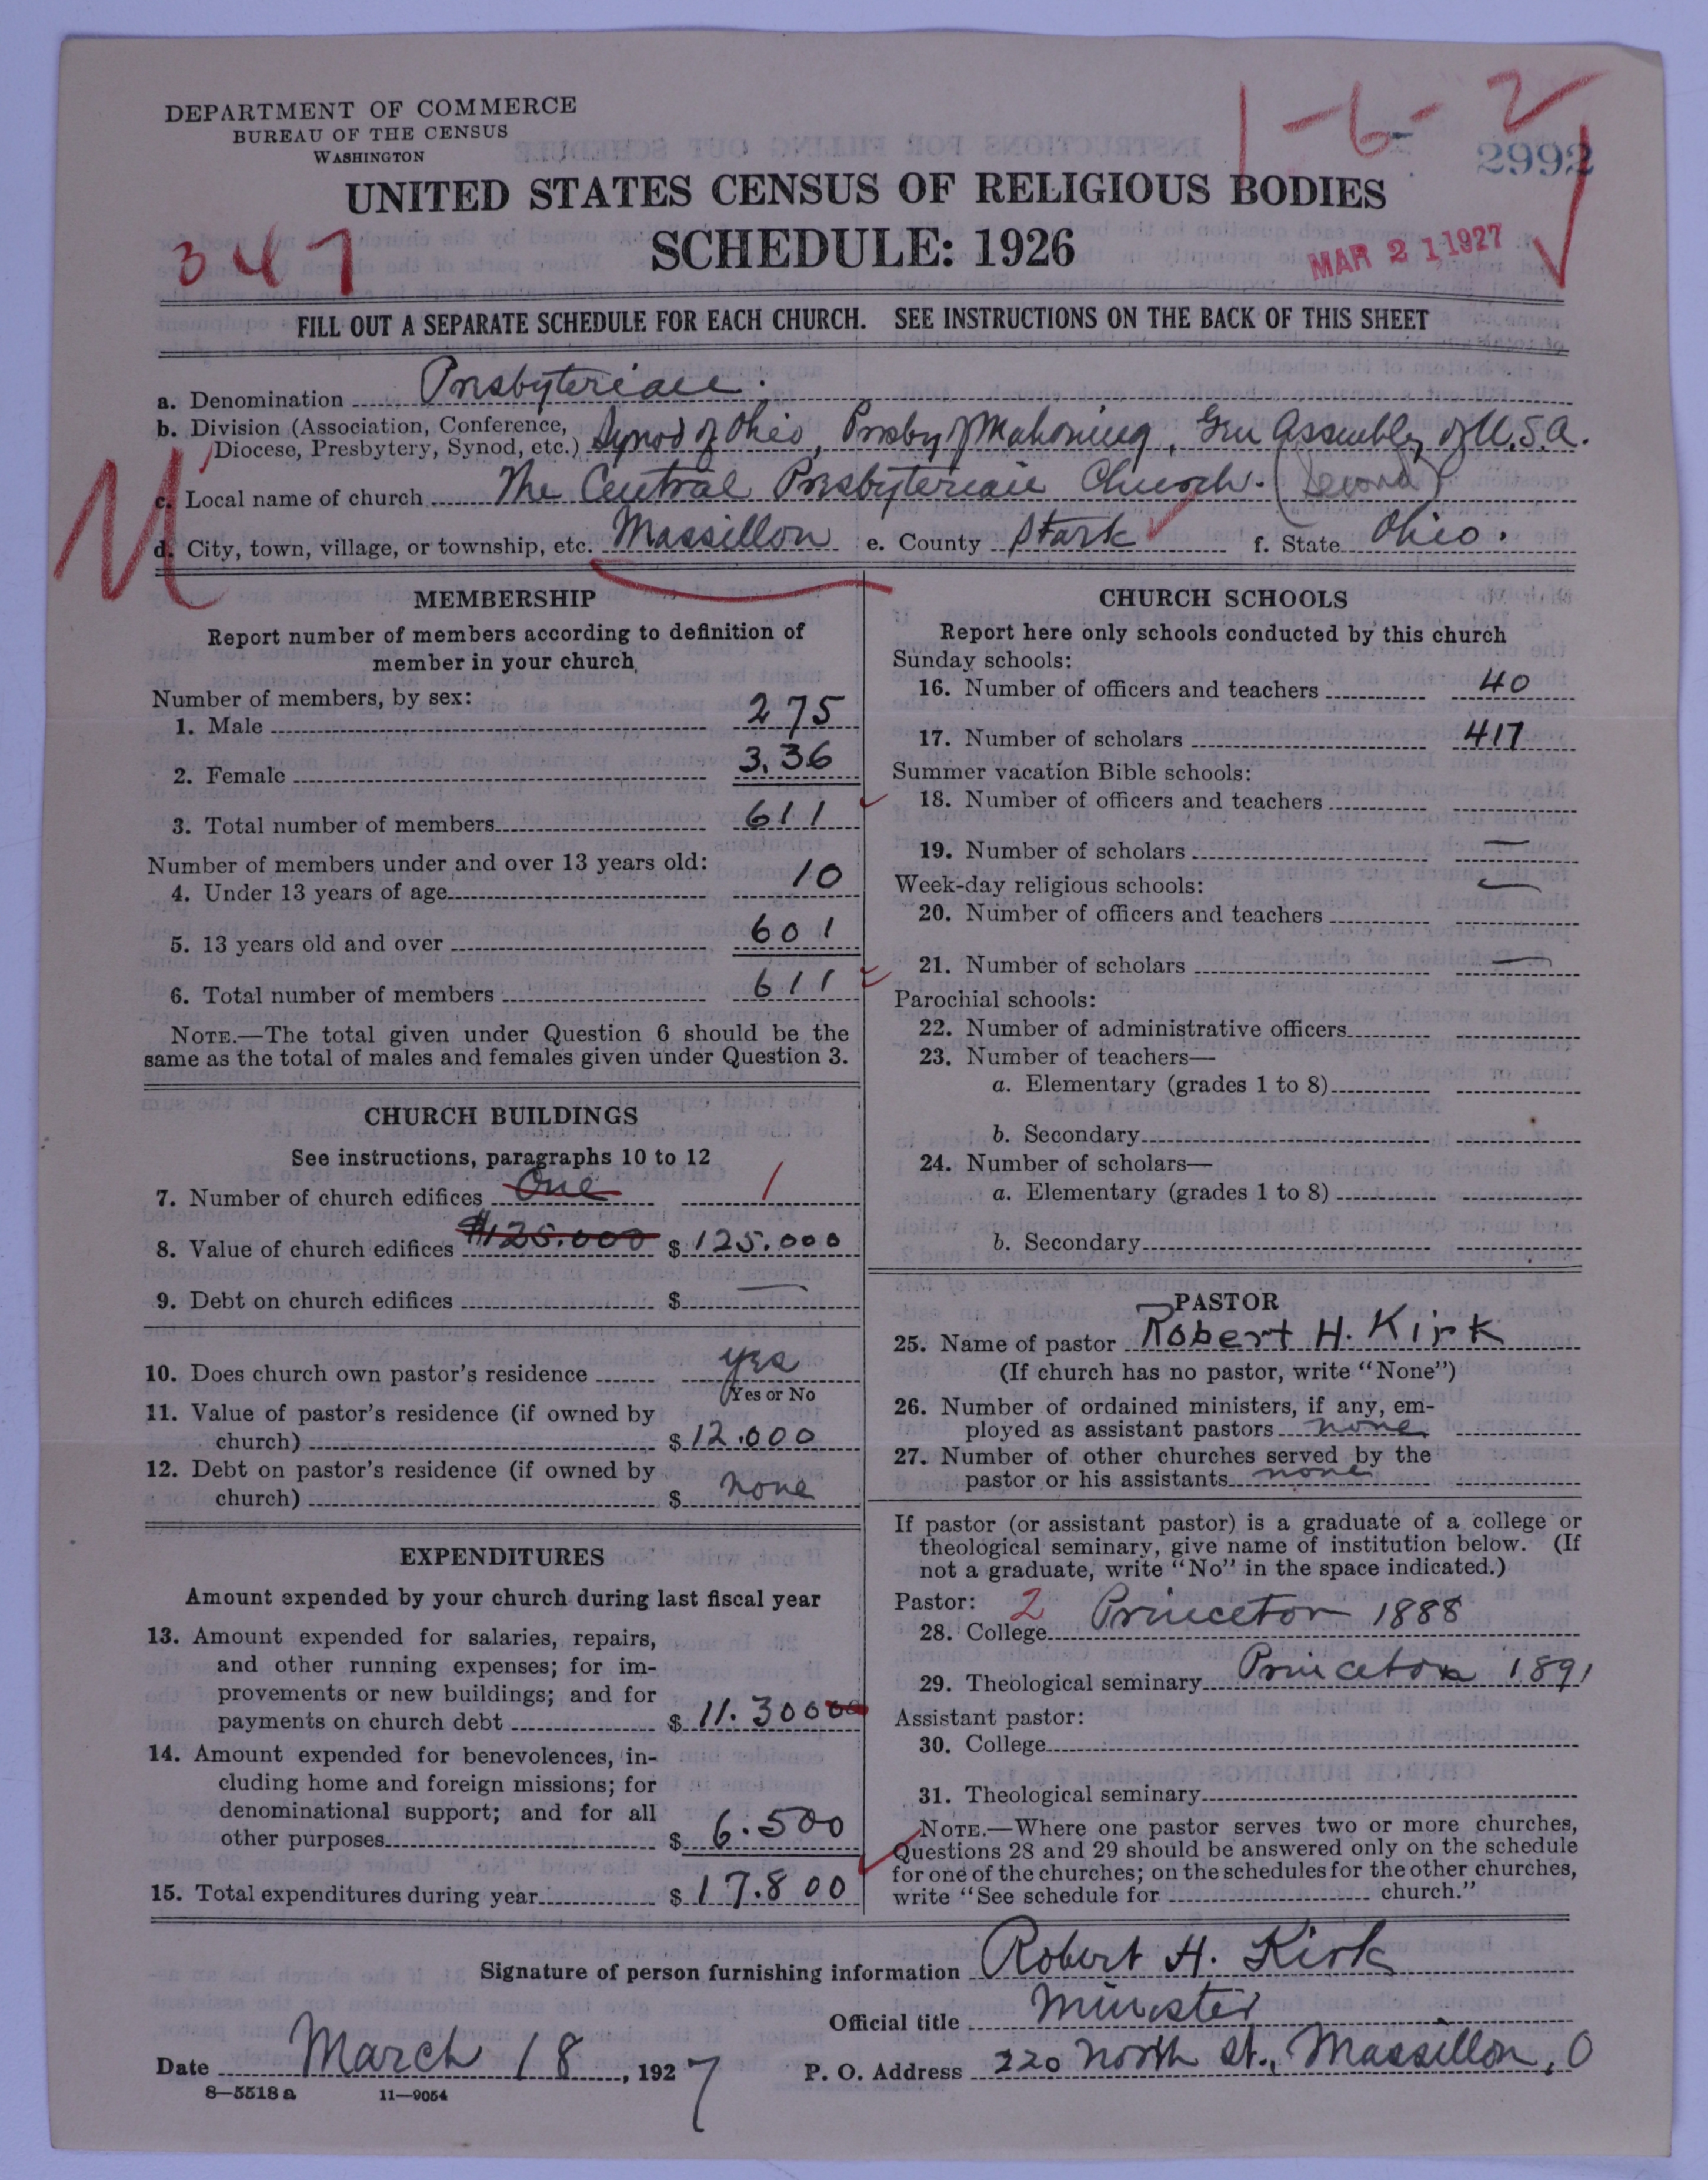 DEPARTMENT OF COMMERCE
BUREAU OF THE CENSUS
WASHINGTON
1-6-2
2992
UNITED STATES CENSUS OF RELIGIOUS BODIES
347
SCHEDULE: 1926
MAR 21 1927
FILL OUT A SEPARATE SCHEDULE FOR EACH CHURCH. SEE INSTRUCTIONS ON THE BACK OF THIS SHEET
a. Denomination Presbyterian.
b. Division (Association, Conference,
Diocese, Presbytery, Synod, etc.) Synod of Ohio, Presby of Mahoning, Gen Assembly of U.S.A.
c. Local name of church The Central Presbyterian Church. (Second)
d. City, town, village, or township, etc. Massillon e. County Stark f. State Ohio.
MEMBERSHIP
Report number of members according to definition of
member in your church
Number of members, by sex:
1. Male 275
2. Female 3,36
3. Total number of members 611
Number of members under and over 13 years old:
4. Under 13 years of age 10
5. 13 years old and over 601
6. Total number of members 611
NOTE.—The total given under Question 6 should be the
same as the total of males and females given under Question 3.
CHURCH BUILDINGS
See instructions, paragraphs 10 to 12
7. Number of church edifices One 1
8. Value of church edifices $125.000 $ 125.000
9. Debt on church edifices $ —
10. Does church own pastor's residence yes
Yes or No
11. Value of pastor's residence (if owned by
church) $ 12.000
12. Debt on pastor's residence (if owned by
church) $ none
EXPENDITURES
Amount expended by your church during last fiscal year
13. Amount expended for salaries, repairs,
and other running expenses; for im-
provements or new buildings; and for
payments on church debt $ 11.300
14. Amount expended for benevolences, in-
cluding home and foreign missions; for
denominational support; and for all
other purposes $ 6.500
15. Total expenditures during year $ 17.800
CHURCH SCHOOLS
Report here only schools conducted by this church
Sunday schools:
16. Number of officers and teachers 40
17. Number of scholars 417
Summer vacation Bible schools:
18. Number of officers and teachers
19. Number of scholars —
Week-day religious schools: —
20. Number of officers and teachers
21. Number of scholars —
Parochial schools:
22. Number of administrative officers
23. Number of teachers—
a. Elementary (grades 1 to 8)
b. Secondary
24. Number of scholars—
a. Elementary (grades 1 to 8)
b. Secondary
PASTOR
25. Name of pastor Robert H. Kirk
(If church has no pastor, write "None")
26. Number of ordained ministers, if any, em-
ployed as assistant pastors none
27. Number of other churches served by the
pastor or his assistants none
If pastor (or assistant pastor) is a graduate of a college or
theological seminary, give name of institution below. (If
not a graduate, write "No" in the space indicated.)
Pastor: 2
28. College Princeton 1888
29. Theological seminary Princeton 1891
Assistant pastor:
30. College
31. Theological seminary
NOTE.—Where one pastor serves two or more churches,
Questions 28 and 29 should be answered only on the schedule
for one of the churches; on the schedules for the other churches,
write "See schedule for church."
Signature of person furnishing information Robert H. Kirk
Official title Minister
Date March 18, 1927 P. O. Address 220 North St., Massillon, O
8—5518 a 11—9054